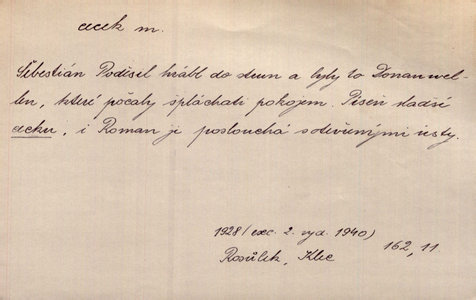 cecek m.
Šebestián Poděsel hrábl do strun a byly to Donauwel-
len, které počaly špláchati pokojem. Píseň sladší
cecku, i Roman ji poslouchá s otevřenými ústy.
1928 (exc. 2. vyd. 1940)
Rosůlek, Klec 162, 11